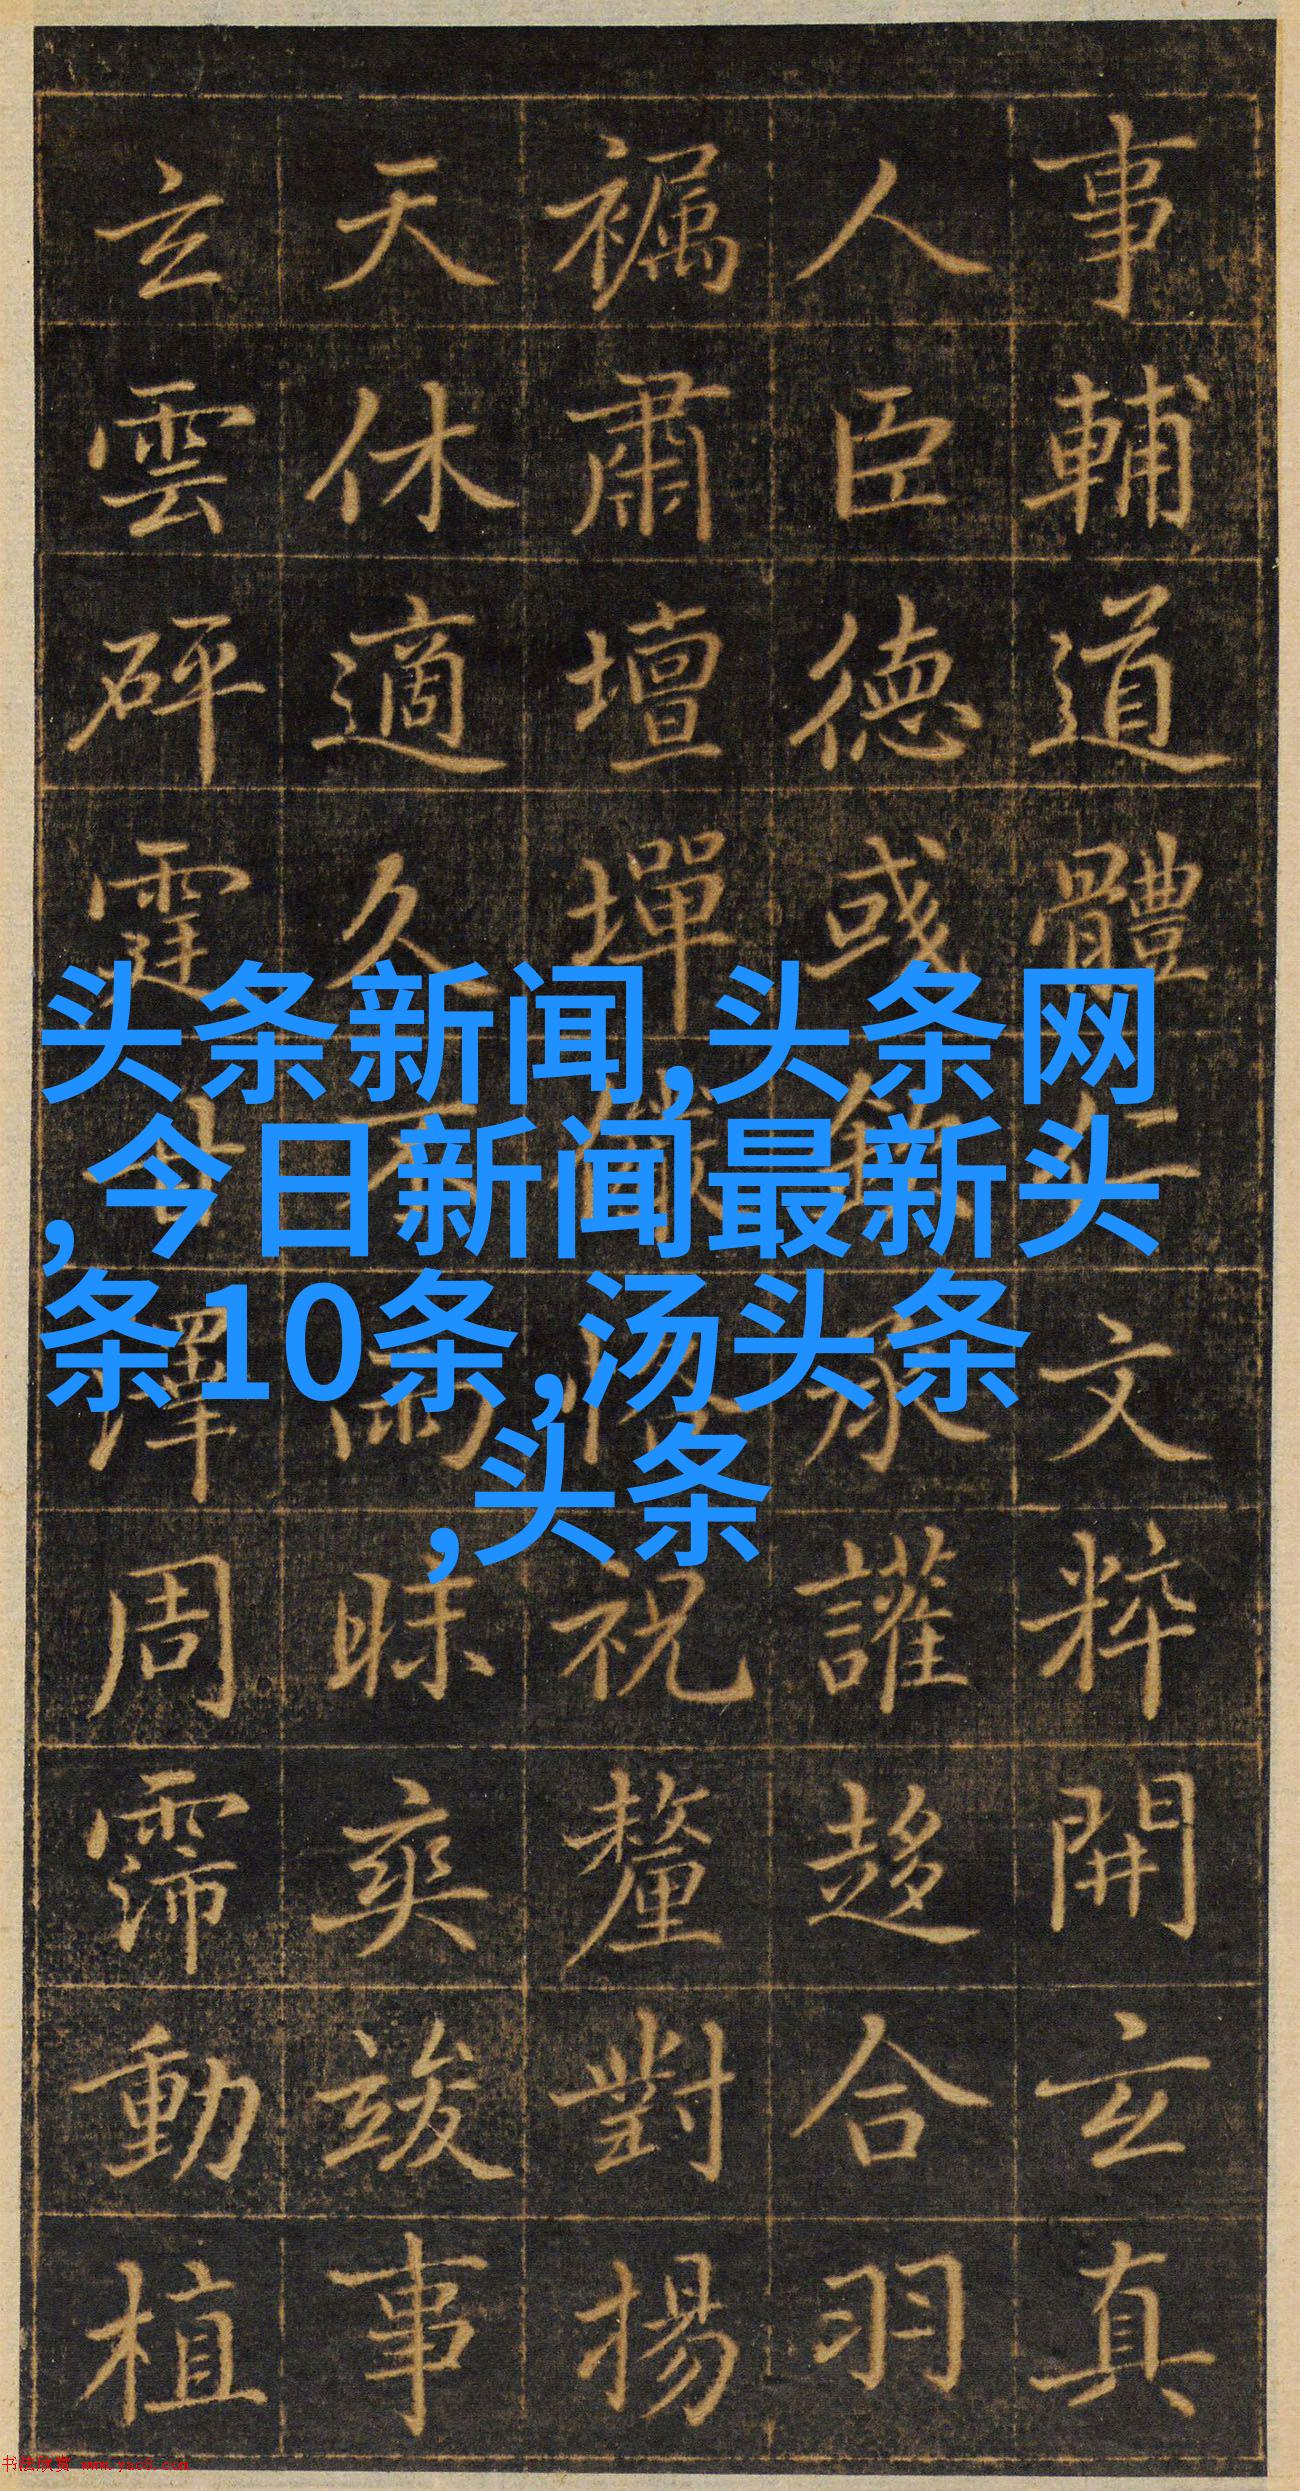 事輔道體仁文粹開玄真
人臣德或承讙趍合羽
肅壇墠祝釐對揚
天休適久雨奕竣事
玄雲砰霆甘澤周霈動植
头条新闻,头条网
,今日新闻最新头
条10条,汤头条
,头条
书法欣赏 www.yac8.com